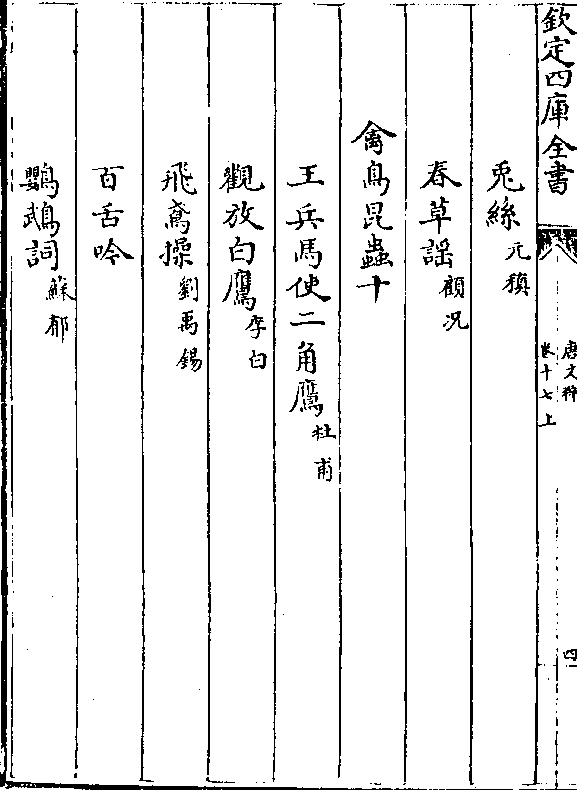 欽定四庫全書
唐文粹
卷十七上
四
兎絲元稹
春草謡顧况
禽鳥昆蟲十
王兵馬使二角鷹杜甫
觀放白鷹李白
飛鳶操劉禹錫
百舌吟
鸚鵡詞蘇郁